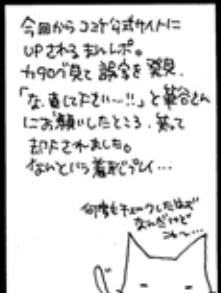 今回からコミケ公式サイトに
UPされるまんレポ。
カタログ見て誤字を発見。
「な、直して下さい…!!」と
にお願いしたところ、笑って
却下されました。
なんという羞恥プレイ…
何度もチェックしたはず
なんだけど